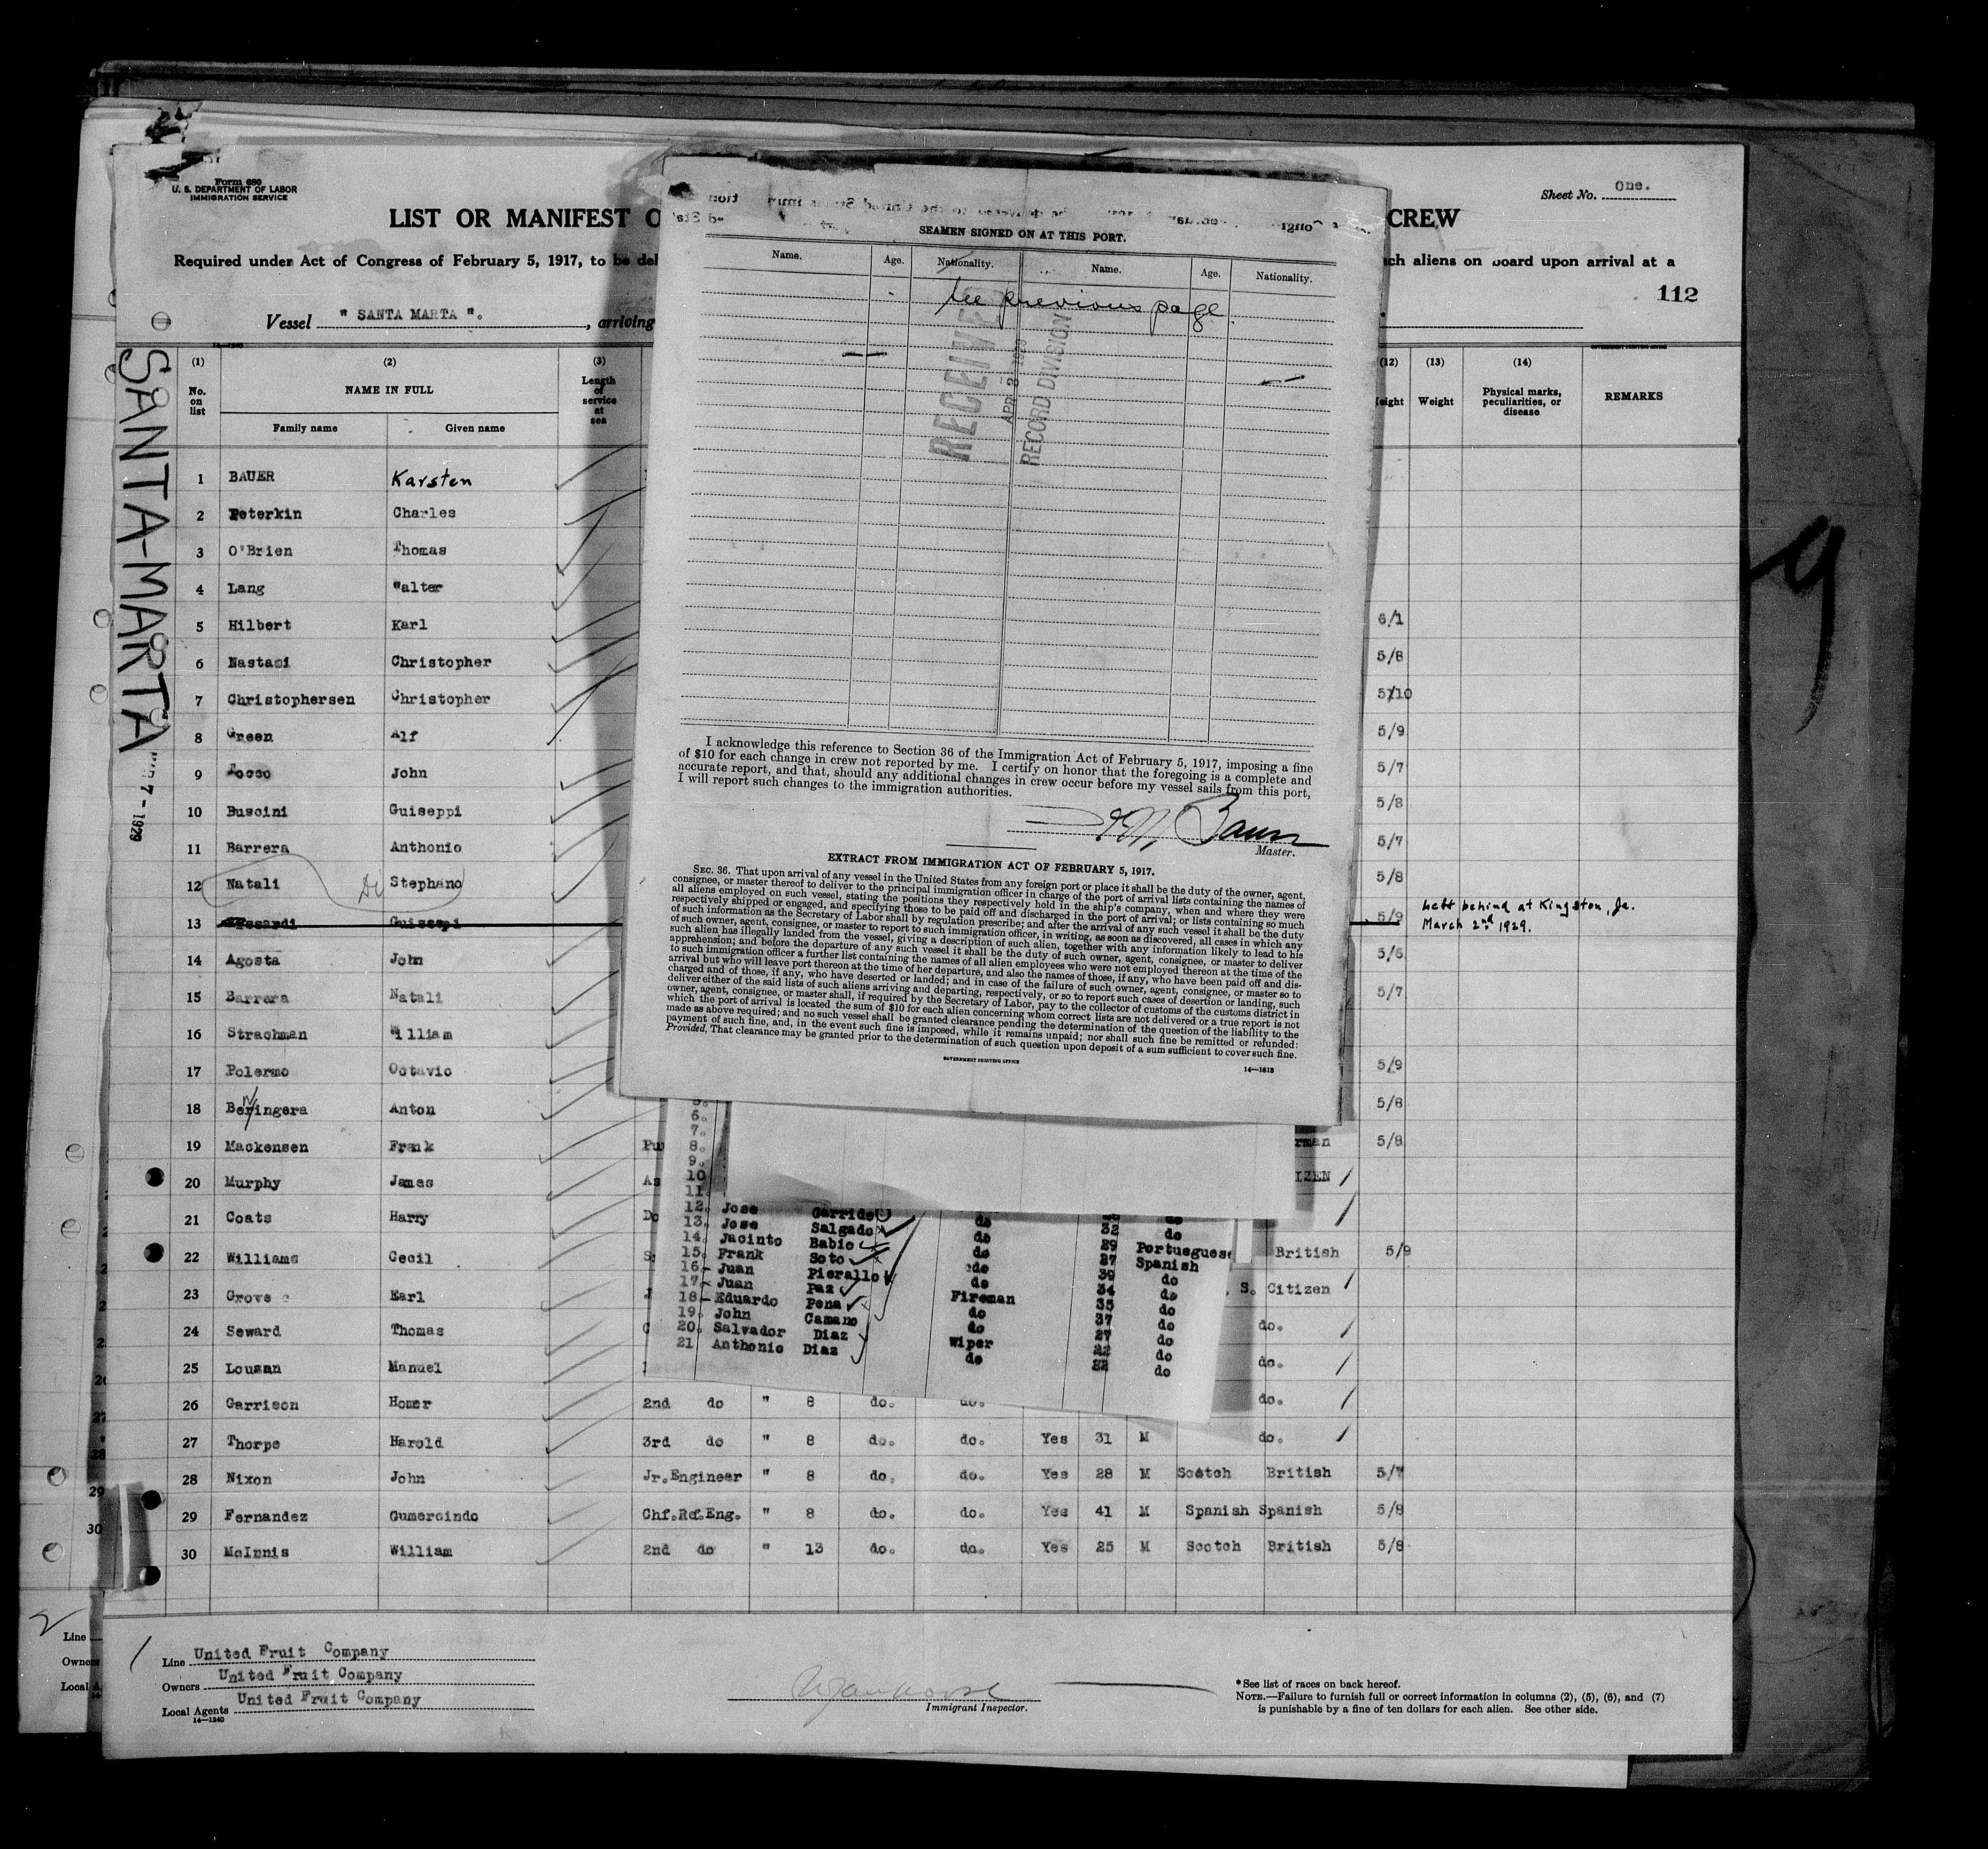 Form 680
U. S. DEPARTMENT OF LABOR
IMMIGRATION SERVICE
Sheet No. One.
LIST OR MANIFEST O
CREW
Required under Act of Congress of February 5, 1917, to be del
ch aliens on board upon arrival at a
112
Vessel " SANTA MARTA ". , arriving
SANTA-MARTA
7 - 1929
(1) No. on list
(2) NAME IN FULL
Family name Given name
(3) Length of service at sea
(12) eight
(13) Weight
(14) Physical marks, peculiarities, or disease
REMARKS
GOVERNMENT PRINTING OFFICE
1 BAUER Karsten
2 Peterkin Charles
3 O'Brien Thomas
4 Lang Walter
5 Hilbert Karl 6/1
6 Nastasi Christopher 5/8
7 Christophersen Christopher 5/10
8 Green Alf 5/9
9 Focco John 5/7
10 Buscini Guiseppi 5/8
11 Barrera Anthonio 5/7
12 Natali Di Stephano 5/8
13 Guiseppi 5/9 Left behind at Kingston, Ja.
March 2nd 1929.
14 Agosta John 5/6
15 Barrera Natali 5/7
16 Strachman William
17 Polermo Octavio 5/9
18 Beringera Anton 5/8
19 Mackensen Frank Pu rman 5/8
20 Murphy James As IZEN
21 Coats Harry Do
22 Williams Cecil S British 5/9
23 Grove Earl J . S. Citizen
24 Seward Thomas do.
25 Lousan Manuel do.
26 Garrison Homer 2nd do " 8 do. do. do.
27 Thorpe Harold 3rd do " 8 do. do. Yes 31 M do.
28 Nixon John Jr.Engineer " 8 do. do. Yes 28 M Scotch British 5/7
29 Fernandez Gumercindo Chf.Ref.Eng. " 8 do. do. Yes 41 M Spanish Spanish 5/8
30 McInnis William 2nd do " 13 do. do. Yes 25 M Scotch British 5/8
SEAMEN SIGNED ON AT THIS PORT.
Name. Age. Nationality. Name. Age. Nationality.
See previous page.
RECEIVED
APR 3 1929
RECORD DIVISION
I acknowledge this reference to Section 36 of the Immigration Act of February 5, 1917, imposing a fine
of $10 for each change in crew not reported by me. I certify on honor that the foregoing is a complete and
accurate report, and that, should any additional changes in crew occur before my vessel sails from this port,
I will report such changes to the immigration authorities.
Master.
EXTRACT FROM IMMIGRATION ACT OF FEBRUARY 5, 1917.
SEC. 36. That upon arrival of any vessel in the United States from any foreign port or place it shall be the duty of the owner, agent,
consignee, or master thereof to deliver to the principal immigration officer in charge of the port of arrival lists containing the names of
all aliens employed on such vessel, stating the positions they respectively hold in the ship's company, when and where they were
respectively shipped or engaged, and specifying those to be paid off and discharged in the port of arrival; or lists containing so much
of such information as the Secretary of Labor shall by regulation prescribe; and after the arrival of any such vessel it shall be the duty
of such owner, agent, consignee, or master to report to such immigration officer, in writing, as soon as discovered, all cases in which any
such alien has illegally landed from the vessel, giving a description of such alien, together with any information likely to lead to his
apprehension; and before the departure of any such vessel it shall be the duty of such owner, agent, consignee, or master to deliver
to such immigration officer a further list containing the names of all alien employees who were not employed thereon at the time of the
arrival but who will leave port thereon at the time of her departure, and also the names of those, if any, who have been paid off and dis-
charged and of those, if any, who have deserted or landed; and in case of the failure of such owner, agent, consignee, or master so to
deliver either of the said lists of such aliens arriving and departing, respectively, or so to report such cases of desertion or landing, such
owner, agent, consignee, or master shall, if required by the Secretary of Labor, pay to the collector of customs of the customs district in
which the port of arrival is located the sum of $10 for each alien concerning whom correct lists are not delivered or a true report is not
made as above required; and no such vessel shall be granted clearance pending the determination of the question of the liability to the
payment of such fine, and, in the event such fine is imposed, while it remains unpaid; nor shall such fine be remitted or refunded:
Provided, That clearance may be granted prior to the determination of such question upon deposit of a sum sufficient to cover such fine.
GOVERNMENT PRINTING OFFICE
14—1613
6.
7.
8.
9.
10
11.
12. Jose Garrido do do
13. Jose Salgado do 32 do
14. Jacinto Babio do 29 Portueguese
15. Frank Soto do 27 Spanish
16- Juan Pierallo do 39 do
17- Juan Paz do 34 do
18- Eduardo Pena Fireman 35 do
19. John Camano do 37 do
20. Salvador Diaz do 27 do
21 Anthonio Diaz Wiper 22 do
do 22 do
27
28
29
30
2
Line
Owners
Local A
Line United Fruit Company
Owners United Fruit Company
Local Agents United Fruit Company
14—1240
Immigrant Inspector.
*See list of races on back hereof.
NOTE.—Failure to furnish full or correct information in columns (2), (5), (6), and (7)
is punishable by a fine of ten dollars for each alien. See other side.
9